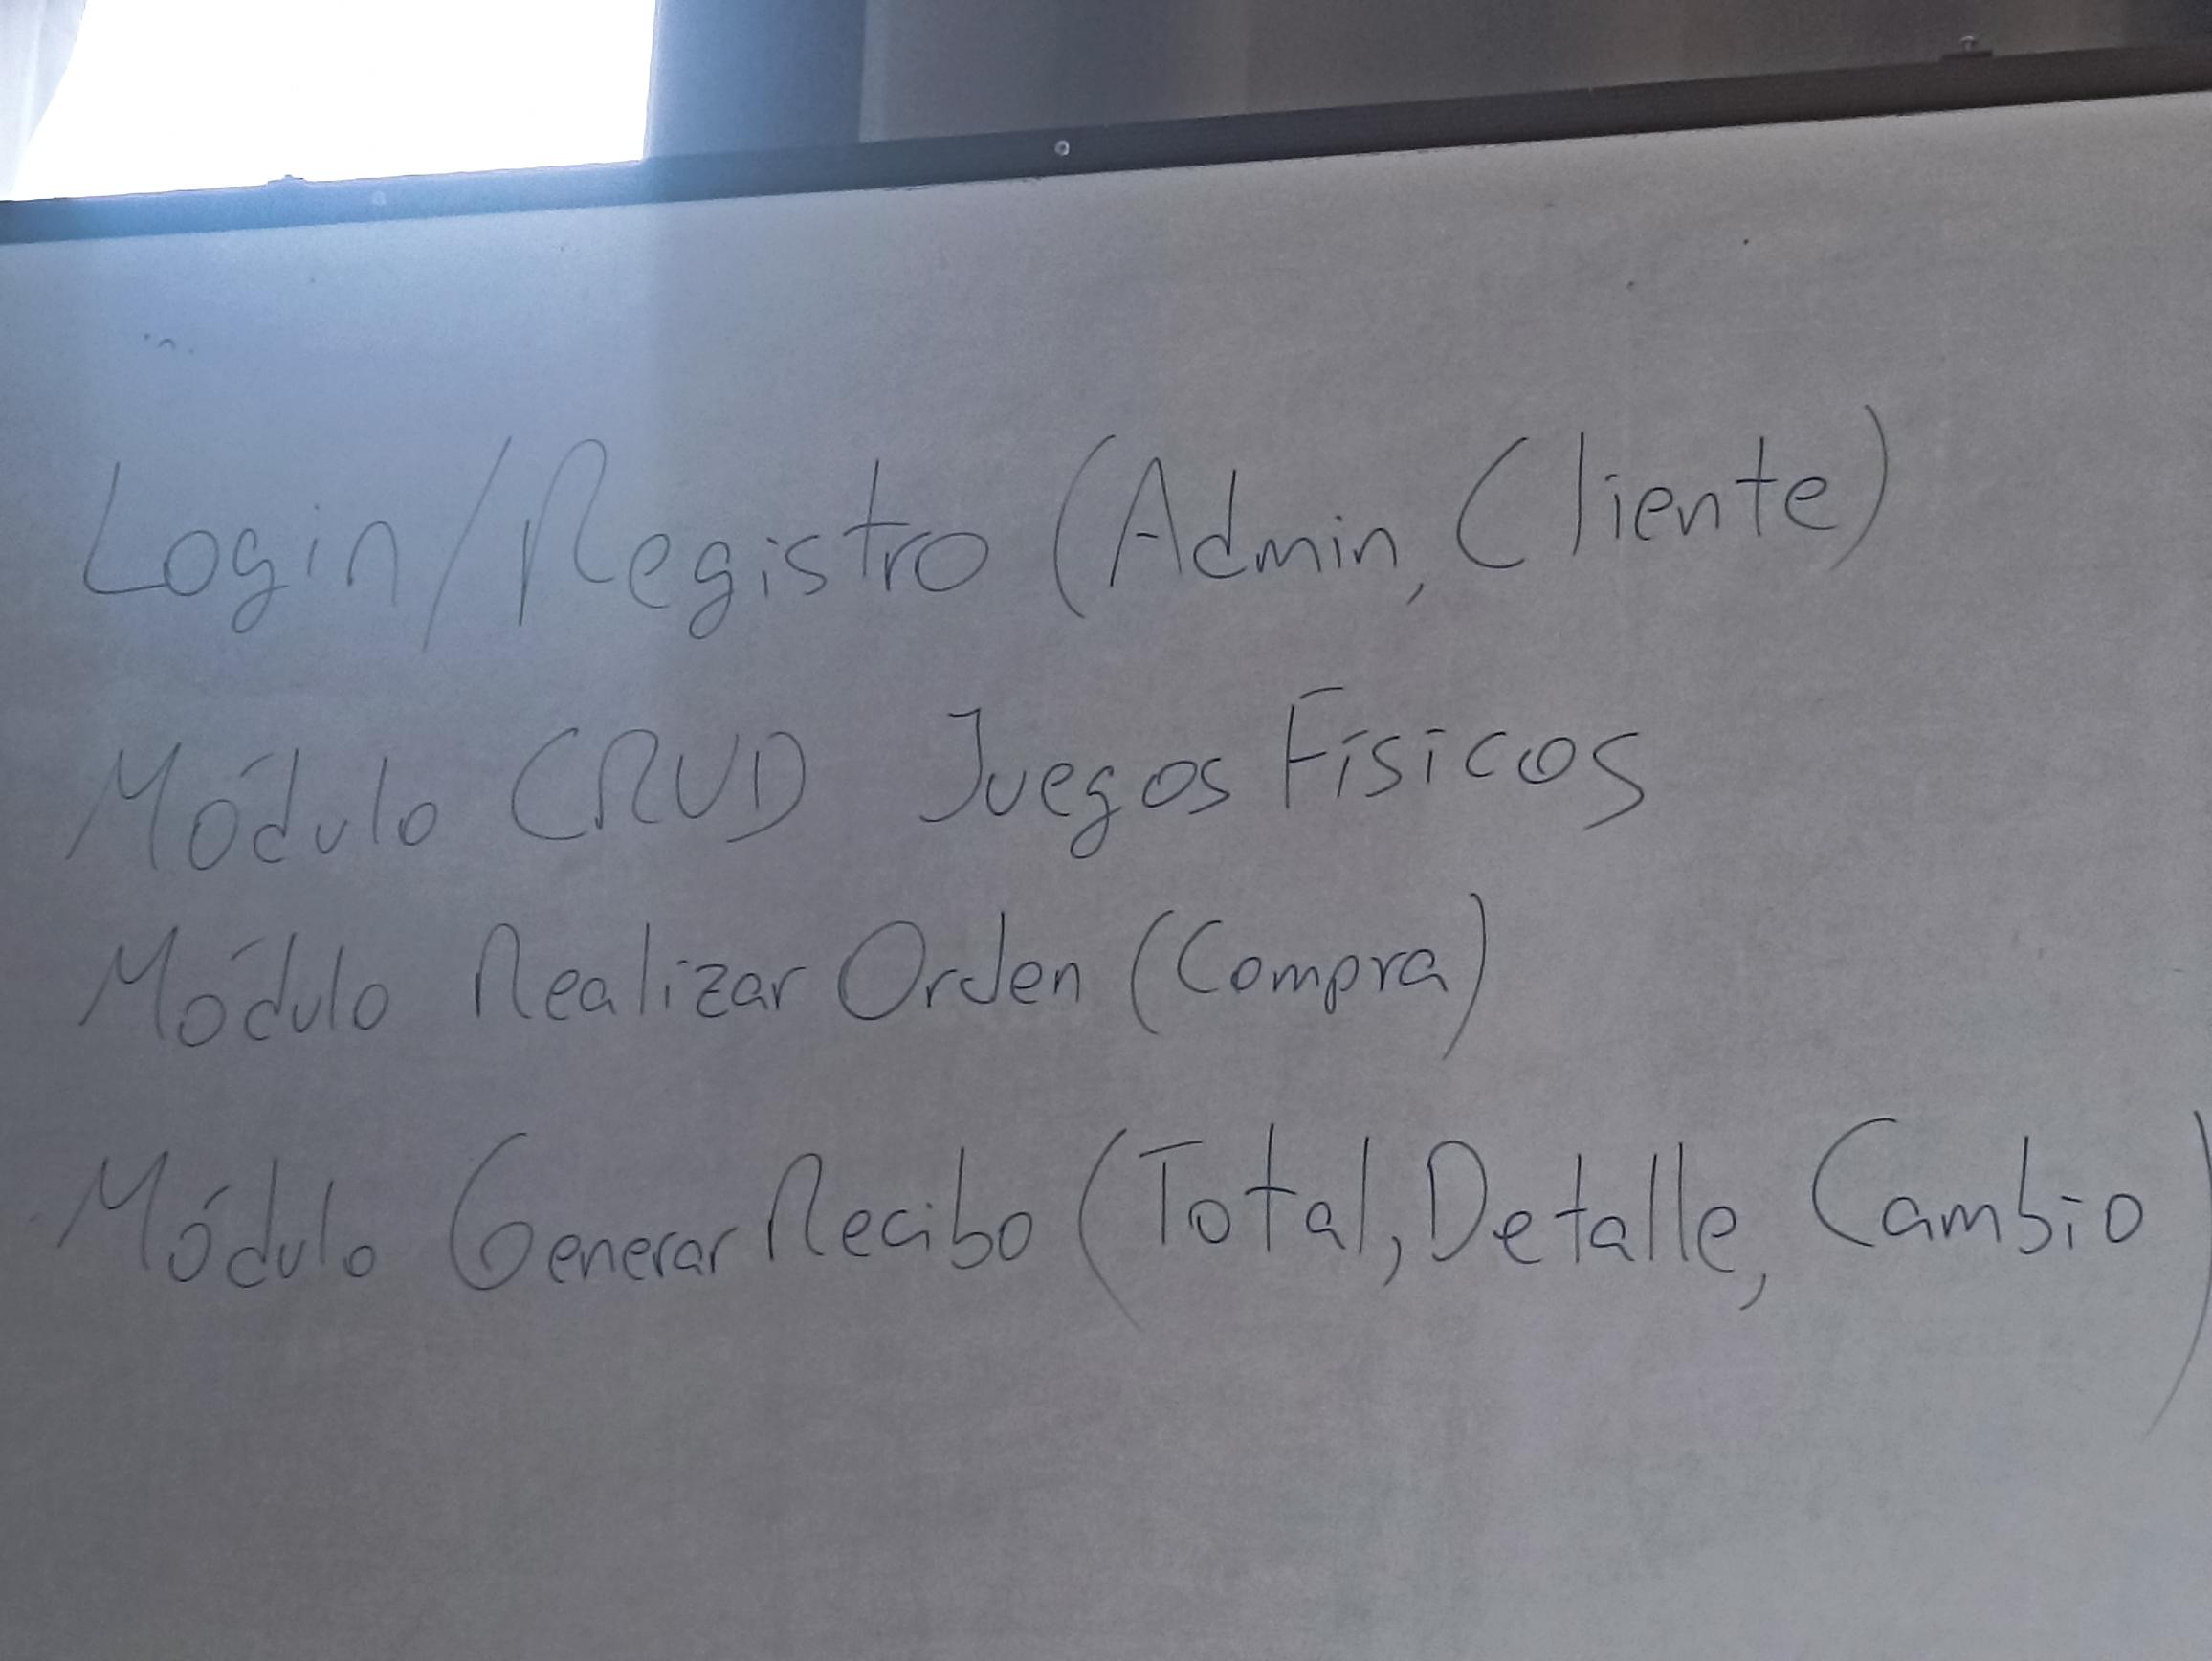 Login/Registro (Admin, Cliente)
Módulo CRUD Juegos Físicos
Módulo Realizar Orden (Compra)
Módulo Generar Recibo (Total, Detalle, Cambio)